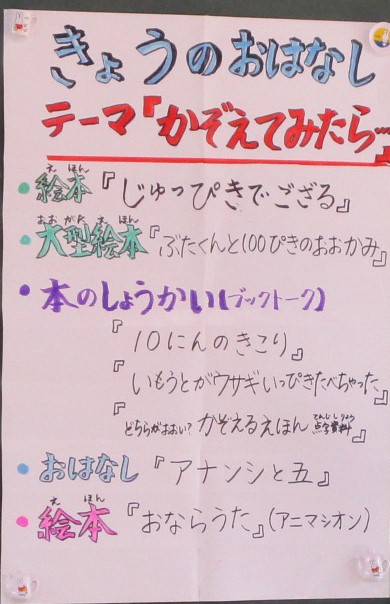 きょうのおはなし
テーマ『かぞえてみたら…
えほん
絵本『じゅっぴきでござる』
おおがたえほん
大型絵本『ぶたくんと100ぴきのおおかみ』
本のしょうかい(ブックトーク)
『10にんのきこり』
『いもうとがウサギいっぴきたべちゃった』
てんじしりょう
『どちらがおおい?かぞえるえほん 点字資料』
おはなし『アナンシと五』
えほん
絵本『おならうた』(アニマシオン)